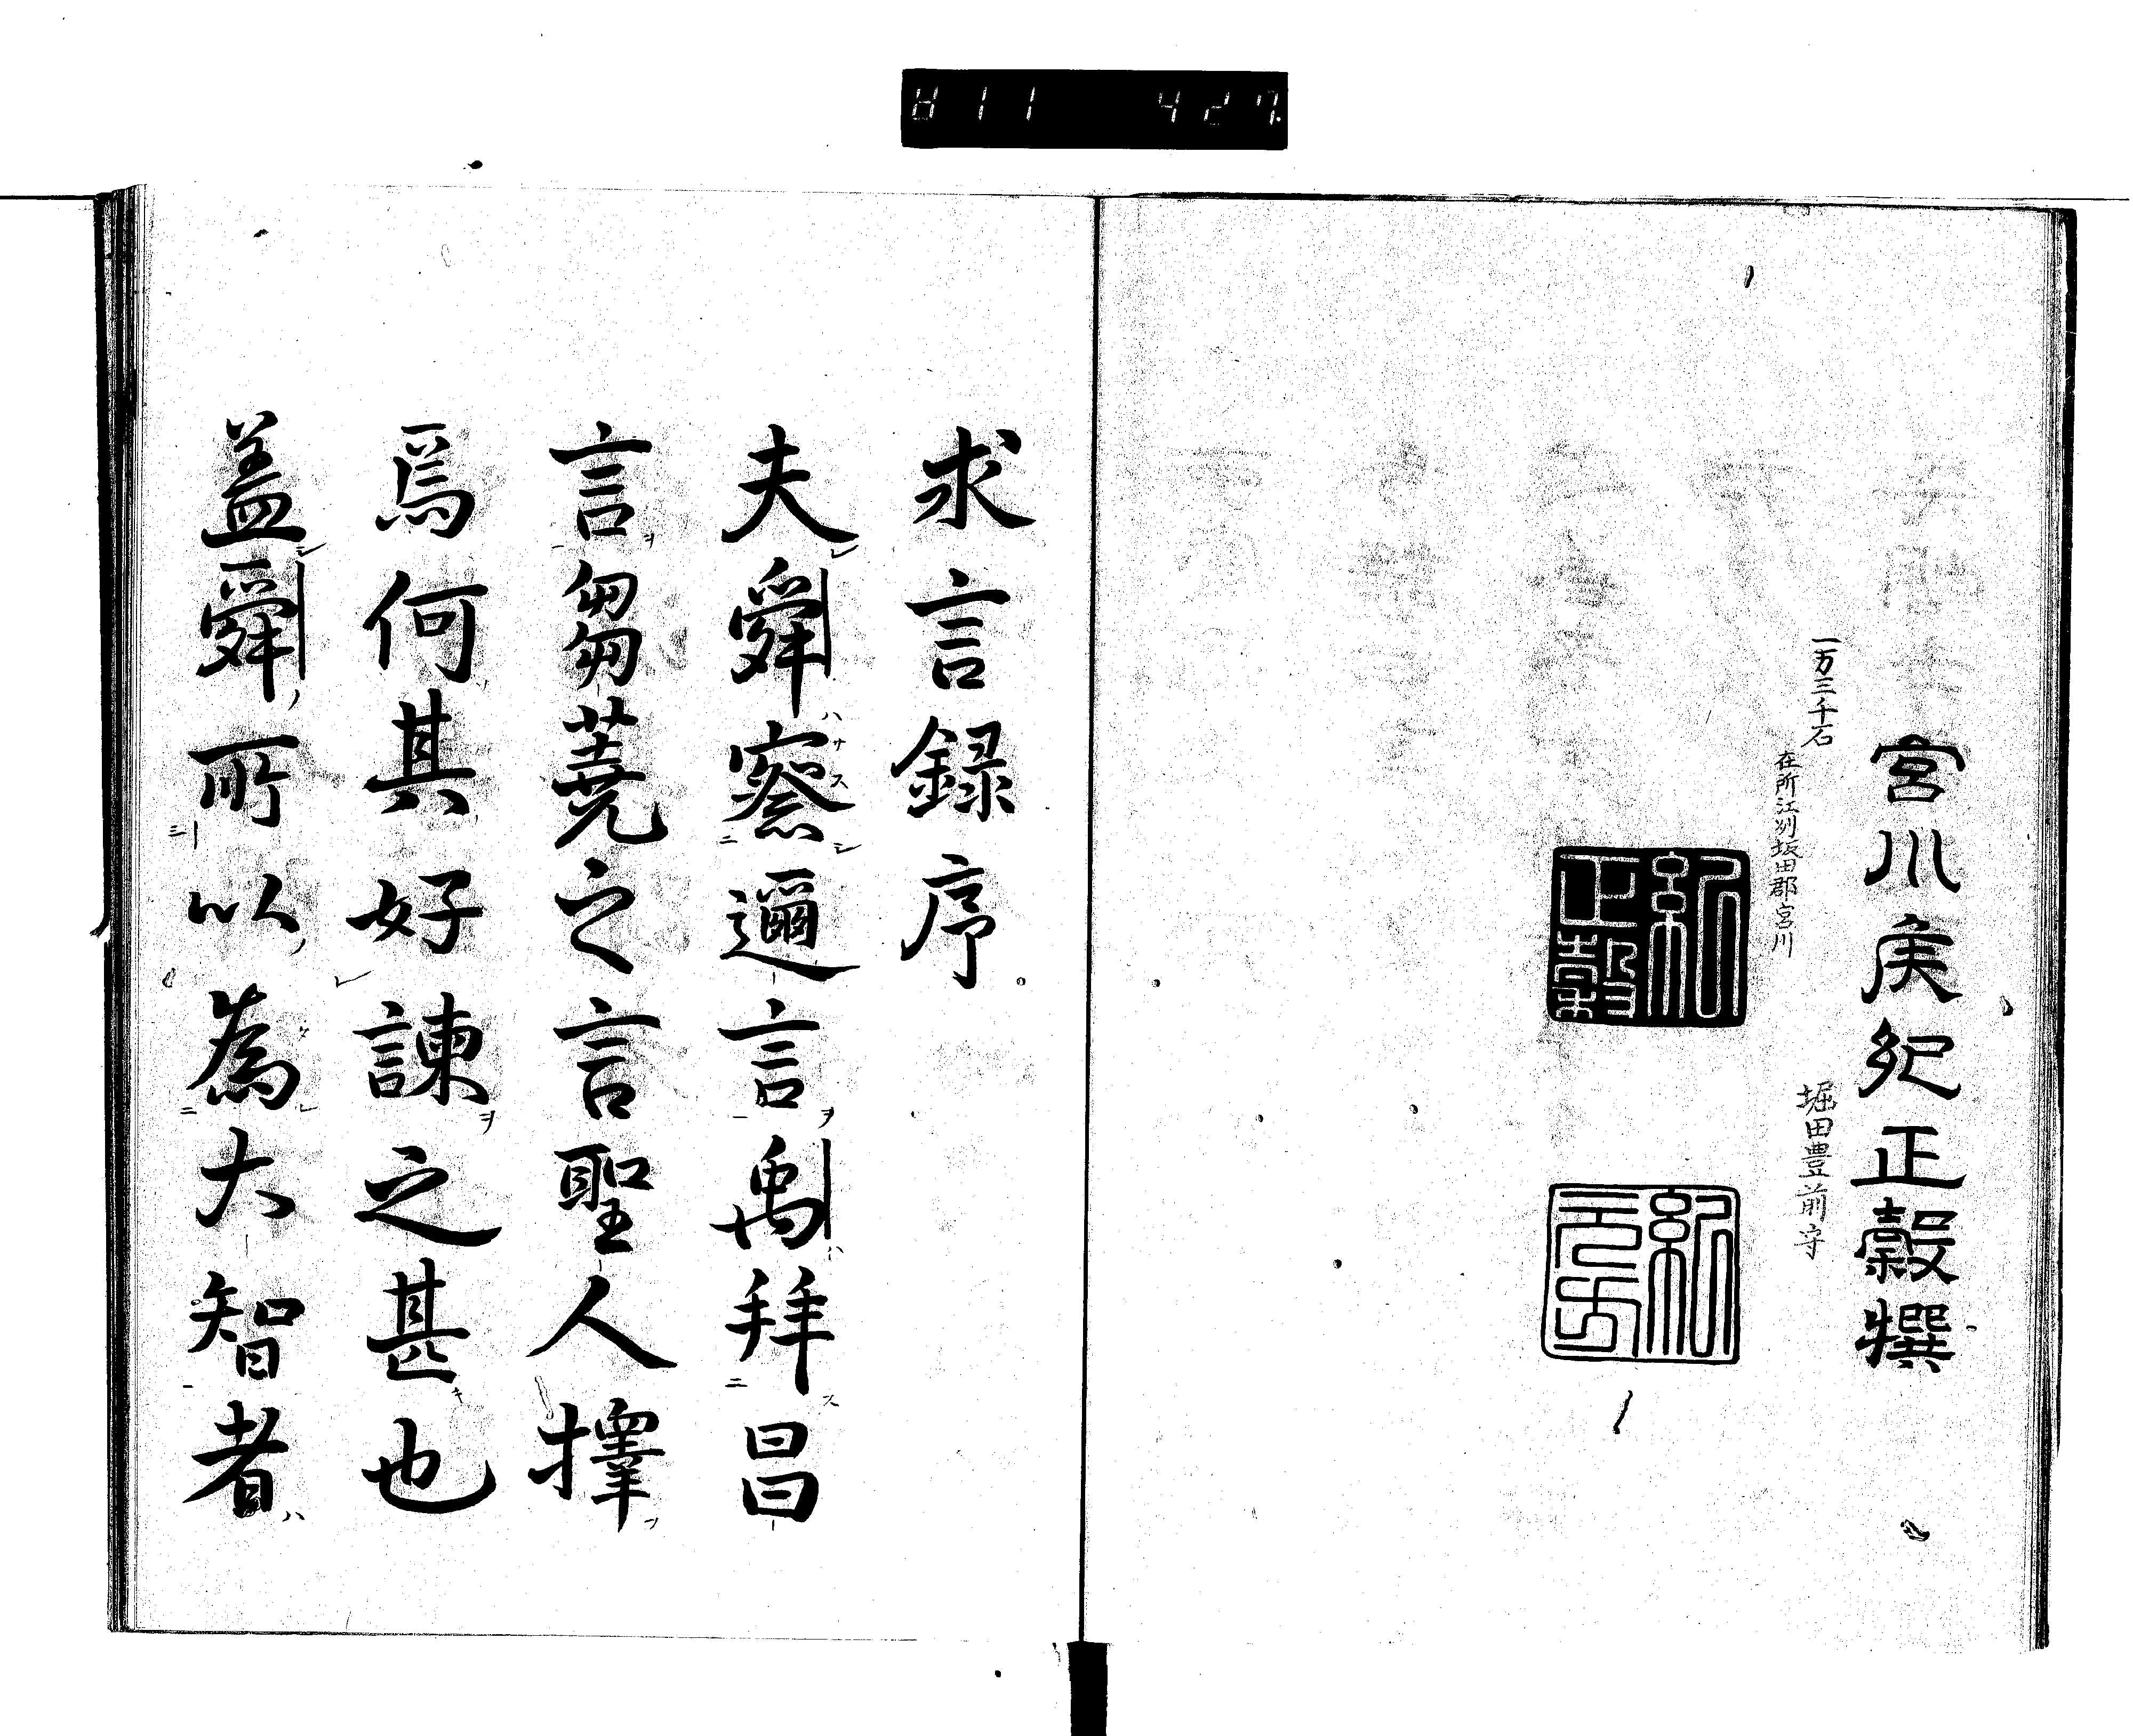 宮川矦紀正穀撰
一万三千石
在所江刕坂田郡宮川
堀田豊前守
紀正穀
紀
求言録序
夫舜察邇言禹拜昌
言芻蕘之言聖人擇
焉何其好諫之甚也
盖舜所以為大智者